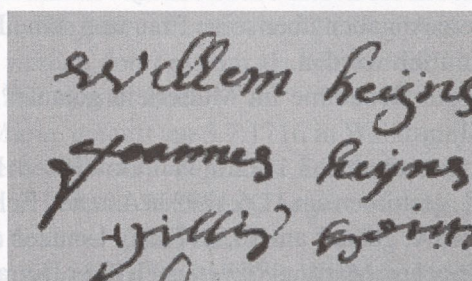 Willem heijns
Joannes heijns
Gillis